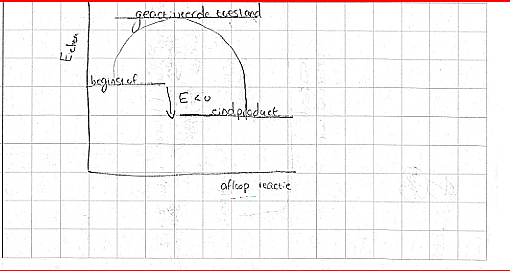 geactiveerde toestand
Echem
beginstof
E < 0
eindproduct
afloop reactie